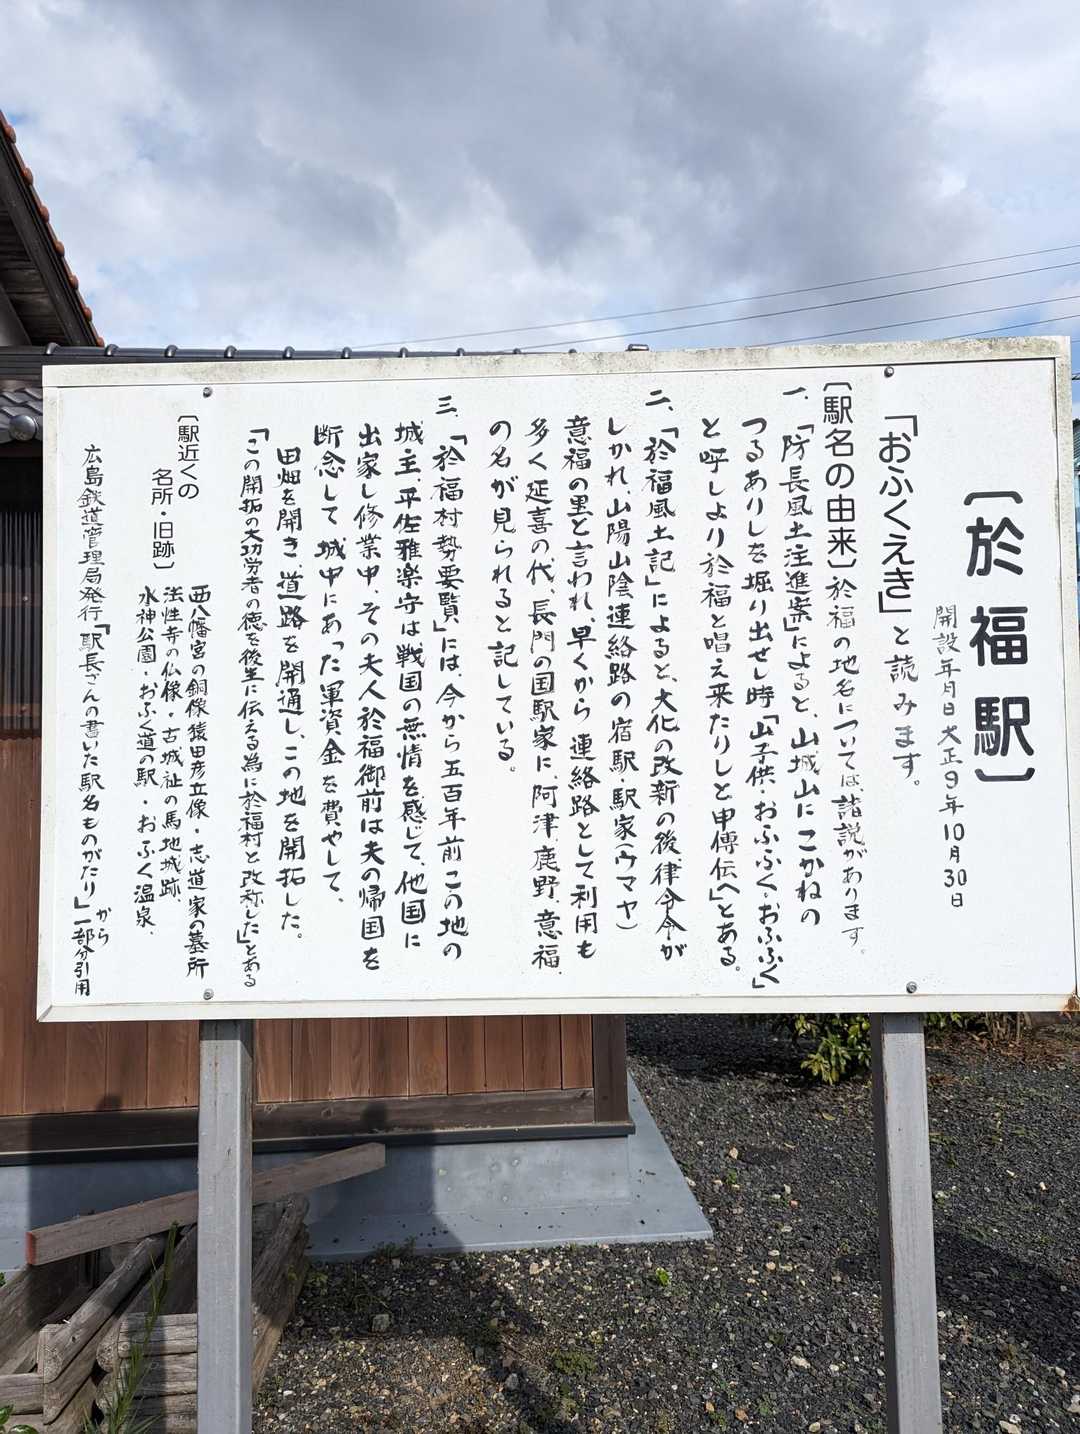 〔於福駅〕
開設年月日 大正9年10月30日
「おふくえき」と読みます。
〔駅名の由来〕於福の地名については諸説があります。
一、「防長風土注進案」によると、山城山にこかねの
つるありしを堀り出せし時「山子供・おふふく・おふふく」
と呼しより於福と唱え来たりしと申傳へ」とある。
二、「於福風土記」によると、大化の改新の後、律令令が
しかれ、山陽山陰連絡路の宿駅・駅家(ウマヤ)
意福の里と言われ、早くから連絡路として利用も
多く延喜の代、長門の国駅家に、阿津、鹿野、意福、
の名が見られると記している。
三、「於福村勢要覧」には、今から五百年前この地の
城主、平佐雅楽守は戦国の無情を感じて、他国に
出家し修業中、その夫人於福御前は夫の帰国を
断念して城中にあった軍資金を費やして、
田畑を開き、道路を開通し、この地を開拓した。
「この開拓の大功労者の徳を後生に伝える為に於福村と改称した」とある
〔駅近くの
名所・旧跡〕
西八幡宮の銅像猿田彦立像・志道家の墓所
法性寺の仏像・古城祉の馬地城跡、
水神公園・おふく道の駅・おふく温泉、
広島鉄道管理局発行「駅長さんの書いた駅名ものがたり」から
一部分引用